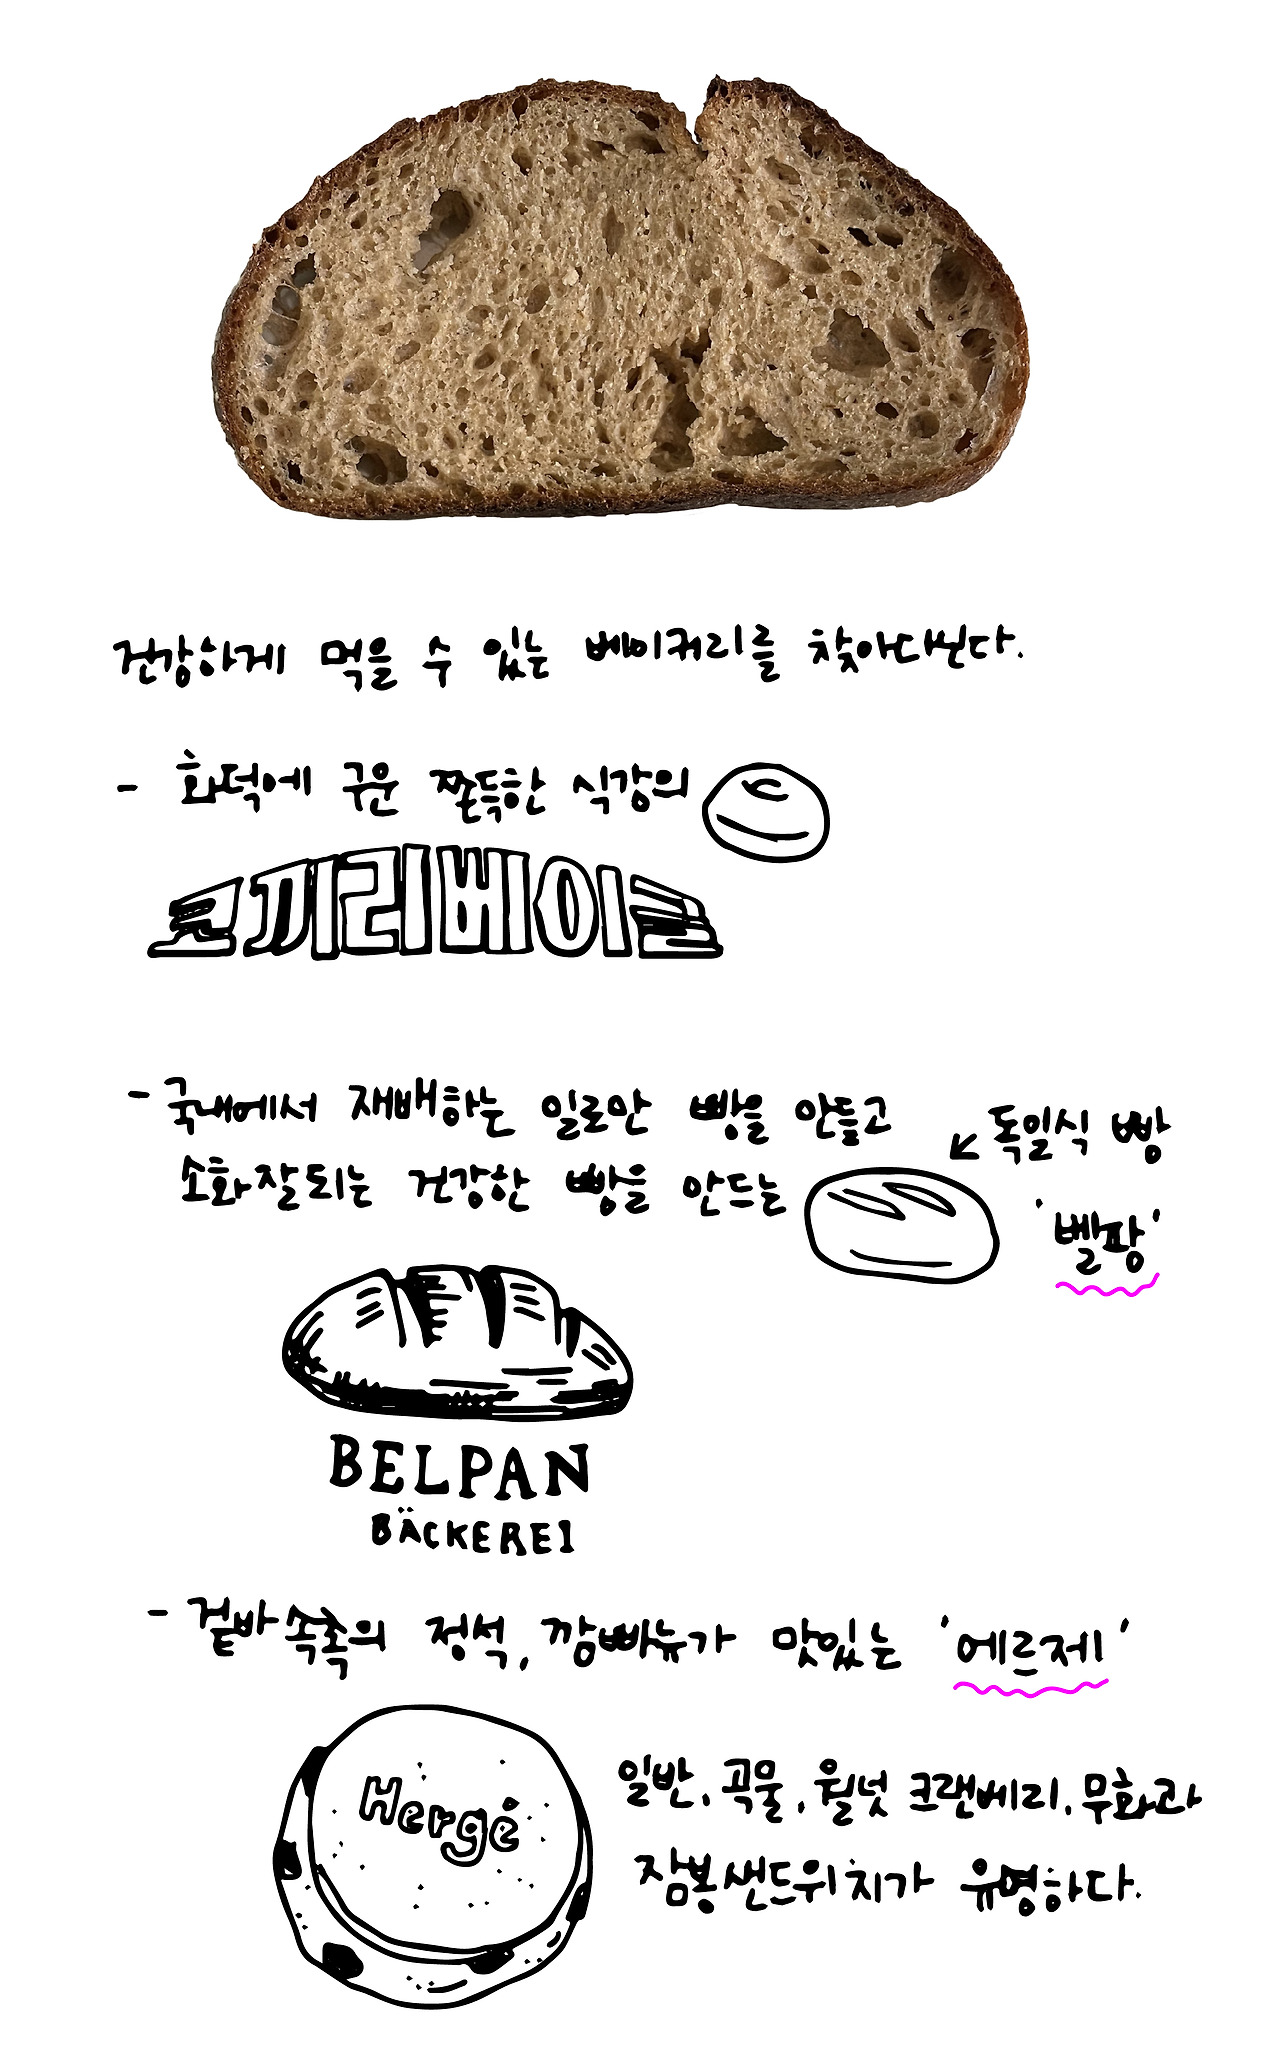 건강하게 먹을 수 있는 베이커리를 찾아다닌다.
- 화덕에 구운 쫀득한 식감의
코끼리베이글
- 국내에서 재배하는 밀로만 빵을 만들고
소화잘되는 건강한 빵을 만드는
↙ 독일식 빵
'벨팡'
BELPAN
BÄCKEREI
- 겉바속촉의 정석, 깜빠뉴가 맛있는 '에르제'
Hergé
일반, 곡물, 월넛 크랜베리, 무화과
잠봉샌드위치가 유명하다.